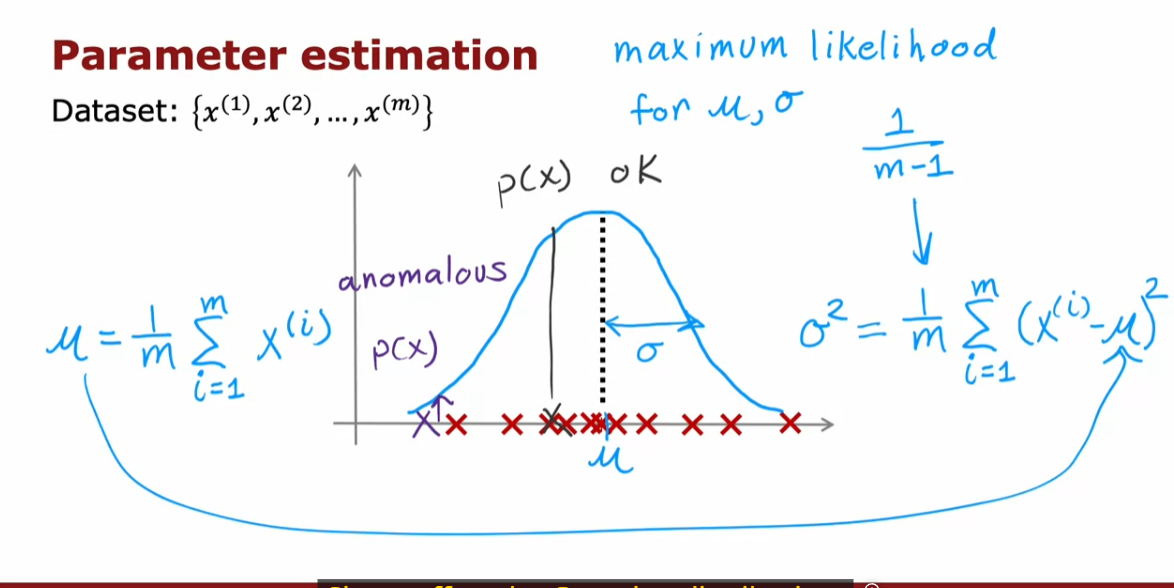 Parameter estimation
Dataset: {x⁽¹⁾, x⁽²⁾, ..., x⁽ᵐ⁾}
maximum likelihood
for μ, σ
1/(m-1)
p(x) ok
anomalous
p(x)
μ = 1/m ∑_{i=1}^{m} x⁽ⁱ⁾
σ
σ² = 1/m ∑_{i=1}^{m} (x⁽ⁱ⁾-μ)²
μ